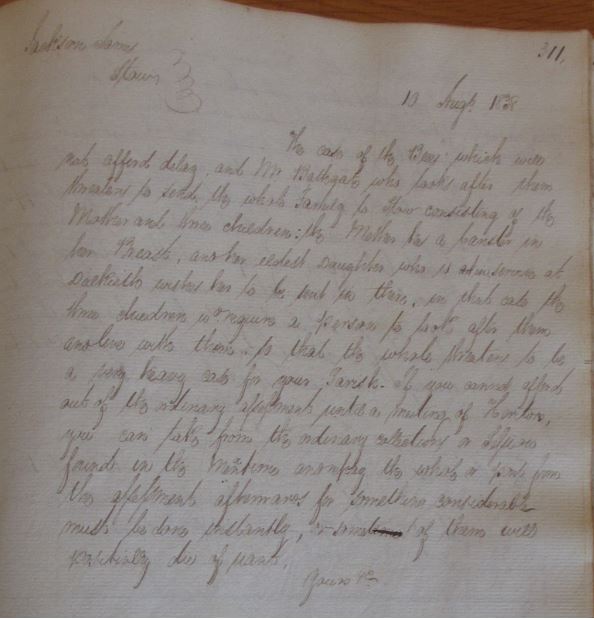 Jackson James
Stow
311.
10 Augt. 1838
The case of the Bees which will
not afford delay, and Mr Bathgate who looks after them
threatens to send the whole Family to Stow consisting of the
Mother and three children: the Mother has a cancer in
her Breast, and her eldest Daughter who is at service at
Dalkeith wishes her to be sent in there, in that case the
three children wd require a person to look after them
and live with them. so that the whole threatens to be
a very heavy case for your Parish. If you cannot afford
out of the ordinary assessment until a meeting of Heritors,
you can take from the ordinary collections or Session
funds in the meantime and repay the whole or part from
the assessment afterwards for something considerable
must be done instantly, or some of them will
positively die of want.
Yours &c